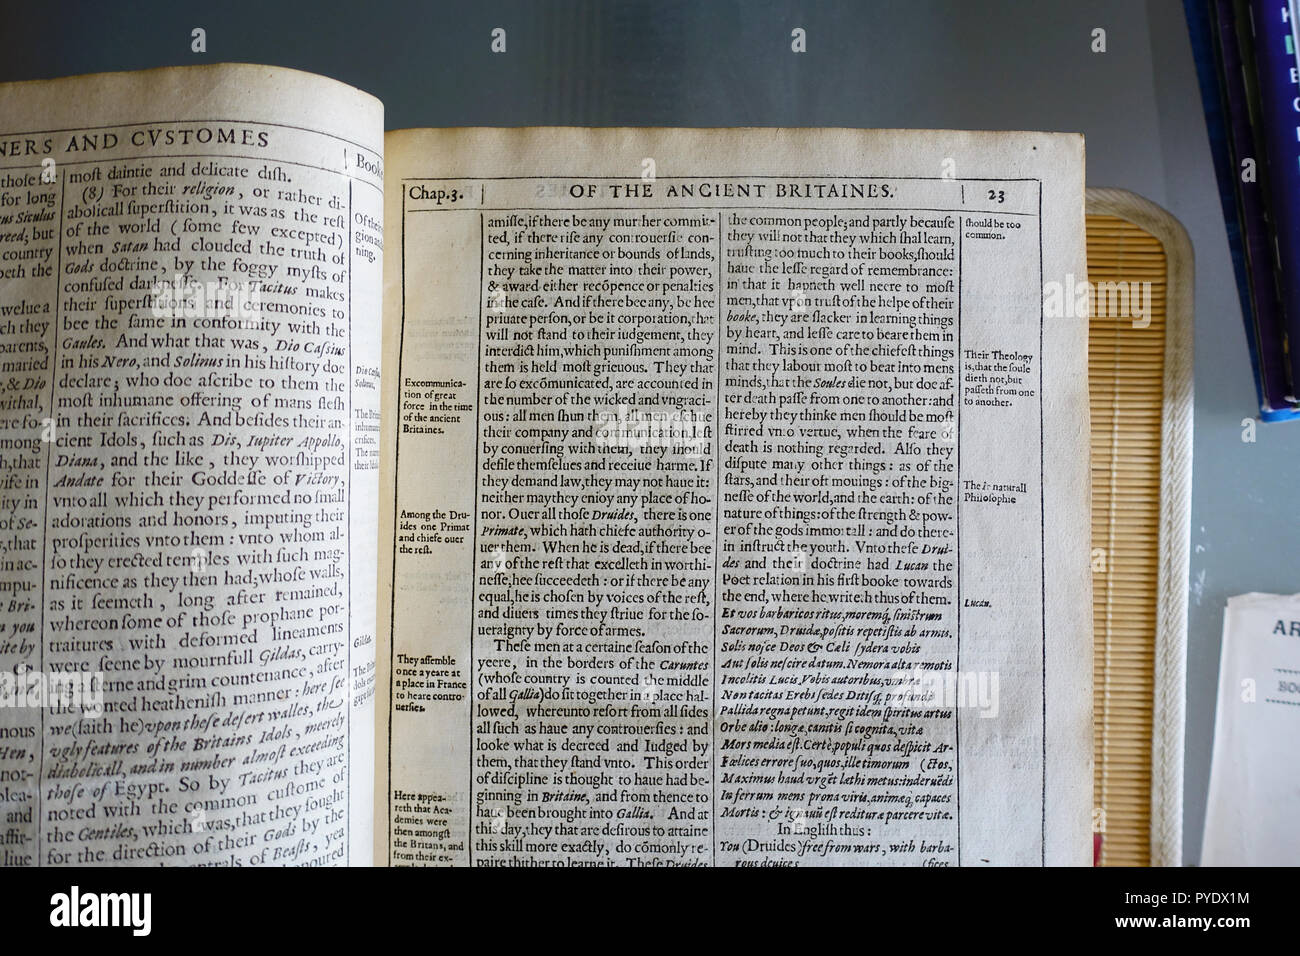 NERS AND CVSTOMES
Booke
those for
for long
us Siculus
reed; but
country
oeth the
welue a
ch they
parents,
maried
, & Dio
withal,
ere fo-
mong
h, that
vife in
ity in
of Se-
s, that
in ac-
mpu-
e Bri-
n you
ite by
nous
Hen,
not-
plea-
and
affir-
liue
most daintie and delicate dish.
(8) For their religion, or rather di-
abolicall superstition, it was as the rest
of the world (some few excepted)
when Satan had clouded the truth of
Gods doctrine, by the foggy mysts of
confused darknesse. For Tacitus makes
their superstitions and ceremonies to
bee the same in conformity with the
Gaules. And what that was, Dio Cassius
in his Nero, and Solinus in his history doe
declare; who doe ascribe to them the
most inhumane offering of mans flesh
in their sacrifices. And besides their an-
cient Idols, such as Dis, Iupiter Appollo,
Diana, and the like, they worshipped
Andate for their Goddesse of Victory,
vnto all which they performed no small
adorations and honors, imputing their
prosperities vnto them: vnto whom al-
so they erected temples with such mag-
nificence as they then had; whose walls,
as it seemeth, long after remained,
whereon some of those prophane por-
traitures with deformed lineaments
were seene by mournfull Gildas, carry-
ing a sterne and grim countenance, after
the wonted heathenish manner: here see
we (saith he) vpon these desert walles, the
vgly features of the Britains Idols, meerely
diabolicall, and in number almost exceeding
those of Egypt. So by Tacitus they are
noted with the common custome of
the Gentiles, which was, that they sought
for the direction of their Gods by the
entrals of Beasts, yea
Of their
Gildas.
Chap. 3.
OF THE ANCIENT BRITAINES.
23
Excommunica-
tion of great
force in the time
of the ancient
Britaines.
Among the Dru-
ides one Primat
and chiefe ouer
the rest.
They assemble
once a yeare at
a place in France
to heare contro-
uersies.
Here appea-
reth that Aca-
demies were
then amongst
the Britans, and
from their ex-
amisse, if there be any murther commit-
ted, if there rise any controuersie con-
cerning inheritance or bounds of lands,
they take the matter into their power,
& award either recōpence or penalties
in the case. And if there bee any, be hee
priuate person, or be it corporation, that
will not stand to their iudgement, they
interdict him, which punishment among
them is held most grieuous. They that
are so excōmunicated, are accounted in
the number of the wicked and vngraci-
ous: all men shun them, all men eschue
their company and communication, lest
by conuersing with them, they should
defile themselues and receiue harme. If
they demand law, they may not haue it:
neither may they enioy any place of ho-
nor. Ouer all those Druides, there is one
Primate, which hath chiefe authority o-
uer them. When he is dead, if there bee
any of the rest that excelleth in worthi-
nesse, hee succeedeth: or if there be any
equal, he is chosen by voices of the rest,
and diuers times they striue for the so-
ueraignty by force of armes.
These men at a certaine season of the
yeere, in the borders of the Caruntes
(whose country is counted the middle
of all Gallia) do sit together in a place hal-
lowed, whereunto resort from all sides
all such as haue any controuersies: and
looke what is decreed and Iudged by
them, that they stand vnto. This order
of discipline is thought to haue had be-
ginning in Britaine, and from thence to
haue been brought into Gallia. And at
this day, they that are desirous to attaine
this skill more exactly, do cōmonly re-
paire thither to learne it. These Druides
the common people; and partly because
they will not that they which shal learn,
trusting too much to their books, should
haue the lesse regard of remembrance:
in that it hapneth well neere to most
men, that vpon trust of the helpe of their
booke, they are slacker in learning things
by heart, and lesse care to beare them in
mind. This is one of the chiefest things
that they labour most to beat into mens
minds, that the Soules die not, but doe af-
ter death passe from one to another: and
hereby they thinke men should be most
stirred vnto vertue, when the feare of
death is nothing regarded. Also they
dispute many other things: as of the
stars, and their oft mouings: of the big-
nesse of the world, and the earth: of the
nature of things: of the strength & pow-
er of the gods immortall: and do there-
in instruct the youth. Vnto these Drui-
des and their doctrine had Lucan the
Poet relation in his first booke towards
the end, where he writeth thus of them.
Et vos barbaricos ritus, moremq, sinistrum
Sacrorum, Druidæ, positis repetistis ab armis.
Solis nosce Deos & Cæli sydera vobis
Aut solis nescire datum. Nemora alta remotis
Incolitis Lucis, Vobis autoribus, vmbræ
Non tacitas Erebi sedes Ditisq; profundi
Pallida regna petunt, regit idem spiritus artus
Orbe alio: longæ, canitis si cognita, vitæ
Mors media est. Certè, populi quos despicit Ar-
Fœlices errore suo, quos, ille timorum (ctos,
Maximus haud vrgēt lethi metus: inde ruēdi
In ferrum mens prona viris, animæq, capaces
Mortis: & ignauū est redituræ parcere vitæ.
In English thus:
You (Druides) free from wars, with barba-
rous deuices (fices
should be too
common.
Their Theology
is, that the soule
dieth not, but
passeth from one
to another.
Their naturall
Philosophie
Lucan.
AR
alamy
Image ID: PYDX1M
www.alamy.com